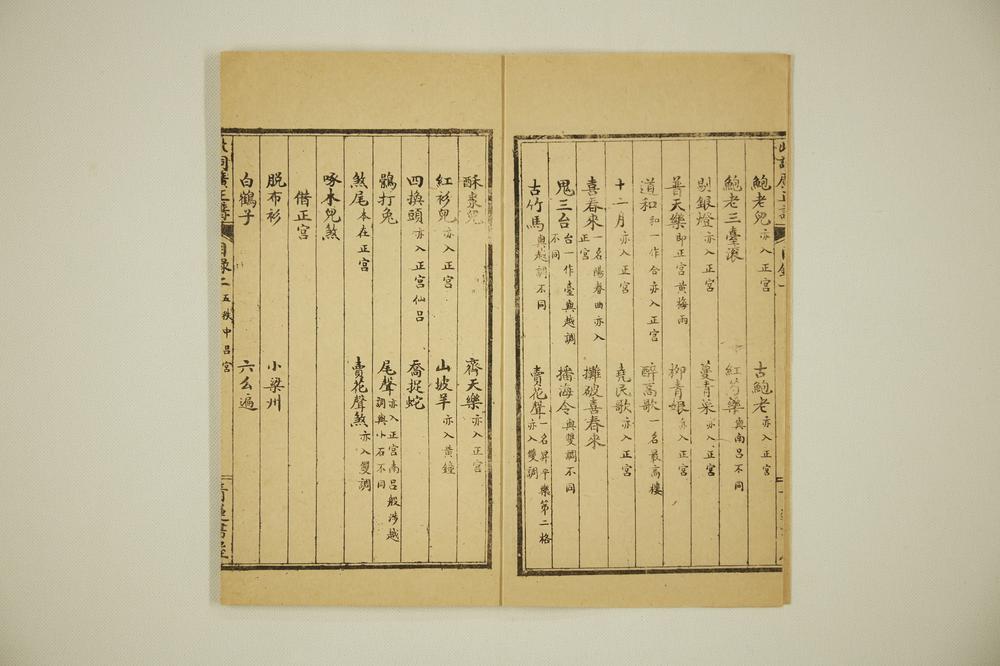 鮑老兒亦入正宮 古鮑老亦入正宮
鮑老三臺滾 紅芍藥與南呂不同
剔銀燈亦入正宮 蔓青菜亦入正宮
普天樂即正宮黃梅雨 柳青娘亦入正宮
道和和一作合亦入正宮 醉高歌一名最高樓
十二月亦入正宮 堯民歌亦入正宮
喜春來一名陽春曲亦入正宮 攤破喜春來
鬼三台台一作臺與越調不同 播海令與雙調不同
古竹馬與越調不同 賣花聲一名昇平樂第二格亦入雙調
酥棗兒 齊天樂亦入正宮
紅衫兒亦入正宮 山坡羊亦入黃鐘
四換頭亦入正宮仙呂 喬捉蛇
鶻打兔 尾聲亦入正宮南呂般涉越調與小石不同
煞尾本在正宮 賣花聲煞亦入雙調
啄木兒煞
借正宮
脫布衫 小梁州
白鶴子 六么遍
目錄二 五秩中呂宮